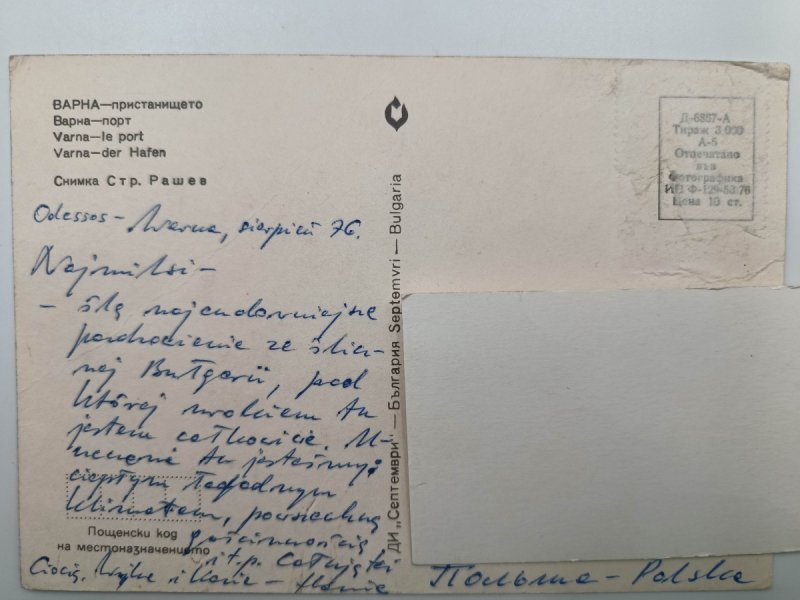 ВАРНА—пристанището
Варна—порт
Varna—le port
Varna—der Hafen
Снимка Стр. Рашев
Odessos - Warna, sierpień 76.
Najmilsi -
- ślę najcudowniejsze
pozdrowienie ze ślicz-
nej Bułgarii, pod
której urokiem tu
jestem całkowicie. U-
rzeczeni tu jesteśmy:
ciepłym łagodnym
klimatem, powszechną
gościnnością
i t.p. Całuję
Ciocię, i
Пощенски код
на местоназначението
ДИ „Септември" — България Septemvri — Bulgaria
Д-6867-А
Тираж 3 000
А-5
Отпечатано
във
Фотографика
ИП Ф-129-53/76
Цена 10 ст.
Польша - Polska